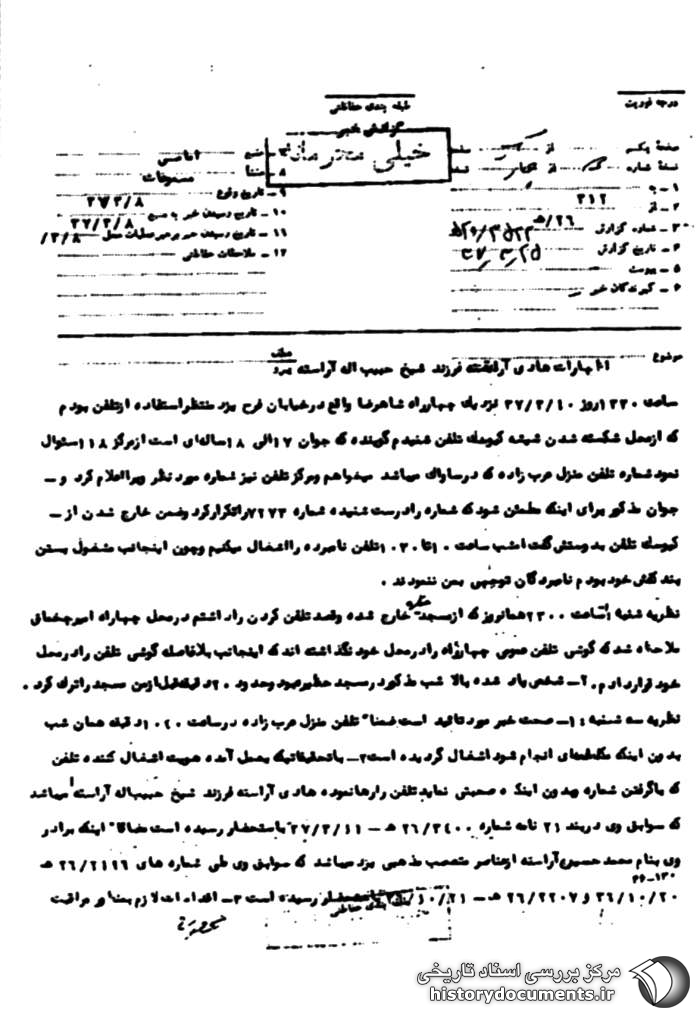 درجه فوریت
طبقه بندی حفاظتی
گزارش خبر
خیلی محرمانه
صفحه یکم از صفحه
نسخه شماره از چهار نسخه
۱ - به
۲ - از ۳۱۲
۳ - شماره گزارش
۴ - تاریخ گزارش
۵ - پیوست
۶ - گیرندگان خبر
۸ - منشأ مسموعات
۹ - تاریخ وقوع ۳۷/۳/۸
۱۰ - تاریخ رسیدن خبر به منبع ۳۷/۳/۸
۱۱ - تاریخ رسیدن خبر به رهبر عملیات محل ۳/۸/
۱۲ - ملاحظات حفاظتی
موضوع اظهارات هادی آراسته فرزند شیخ حبیب اله آراسته
ساعت ۱۲۳۰ روز ۳۷/۳/۱۰ نزدیک چهارراه شاهرضا واقع در خیابان فرح یزد منتظر استفاده از تلفن بودم
که از محل شکسته شدن شیشه کیوسک تلفن شنیدم گوینده که جوان ۱۷ الی ۱۸ ساله‌ای است از مرکز ۱۱۸ سئوال
نمود شماره تلفن منزل عرب زاده که در ساواک میباشد میخواهم و مرکز تلفن نیز شماره مورد نظر ویرا اعلام کرد و -
جوان مذکور برای اینکه مطمئن شود که شماره را درست شنیده شماره ۷۲۷۳ را تکرار کرد و ضمن خارج شدن از -
کیوسک تلفن به دوستش گفت امشب ساعت ۱۰ تا ۱۰.۳۰ تلفن نامبرده را اشغال میکنیم و چون اینجانب مشغول بستن
بند کفش خود بودم نامبردگان توجهی بمن ننمودند .
نظریه شنبه ۱ـ ساعت ۲۳۰۰ همانروز که از مسجد خارج شده و قصد تلفن کردن را داشتم در محل چهارراه امیرچخماق
ملاحظه شد که گوشی تلفن عمومی چهارراه را در محل خود نگذاشته اند که اینجانب بلافاصله گوشی تلفن را در محل
خود قرار دادم. ۲ـ شخص یاد شده بالا شب مذکور در مسجد حظیره بود و حدود ۲۰ دقیقه قبل از من مسجد را ترک کرد .
نظریه سه شنبه : ۱ـ صحت خبر مورد تائید است ضمناً تلفن منزل عرب زاده در ساعت ۱۰.۲۰ دقیقه همان شب
بدون اینکه مکالمه‌ای انجام شود اشغال گردیده است ۲ـ با تحقیقاتیکه بعمل آمده هویت اشغال کننده تلفن
که با گرفتن شماره بدون اینکه صحبتی نماید تلفن را رها نموده هادی آراسته فرزند شیخ حبیب اله آراسته میباشد
که سوابق وی در بند ۲۱ نامه شماره ۲۶/۳۴۰۰ هـ - ۳۷/۳/۱۱ باستحضار رسیده است مضافاً اینکه برادر
وی بنام محمد حسین آراسته از عناصر متعصب مذهبی یزد میباشد که سوابق وی طی شماره های ۲۶/۲۱۹۶ هـ
۳۶/۱۰/۲۰ و ۲۶/۲۲۰۷ هـ - ۱۰/۲۱/ باستحضار رسیده است ۳ـ اقدامات لازم بمنظور مراقبت
طبقه بندی حفاظتی
مرکز بررسی اسناد تاریخی
historydocuments.ir